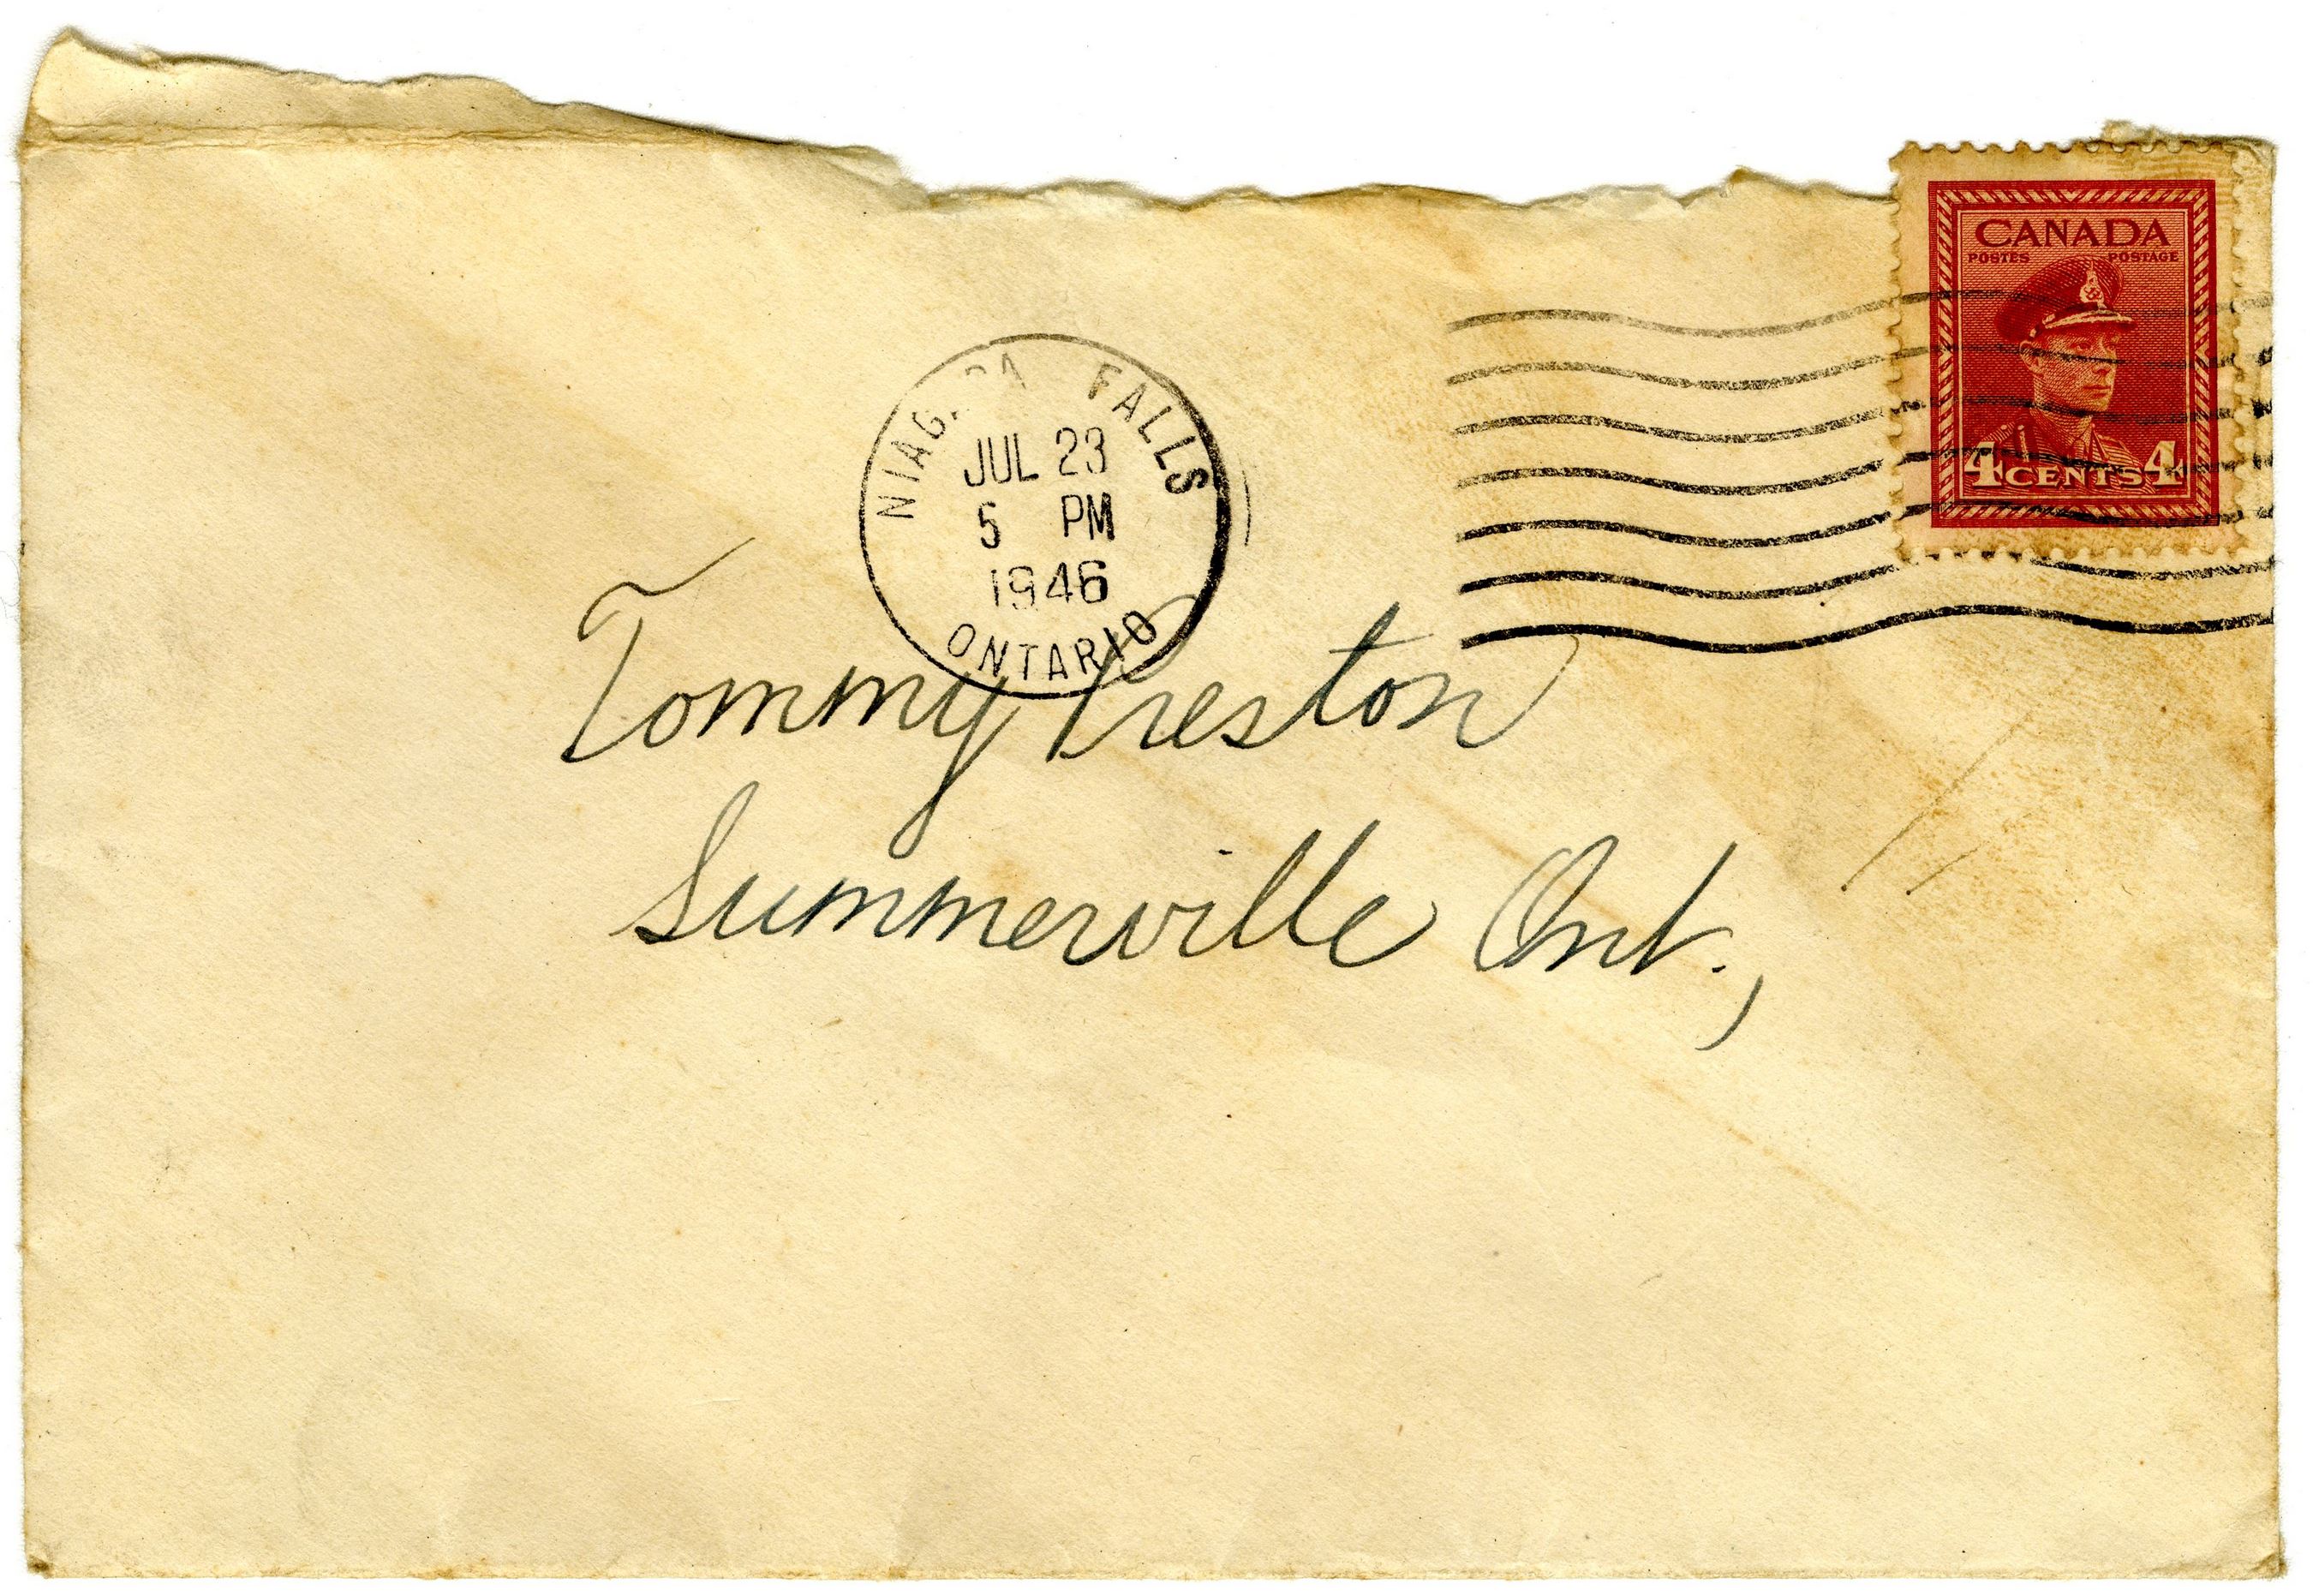 CANADA
POSTES POSTAGE
4 CENTS 4
NIAGARA FALLS
JUL 23
5 PM
1946
ONTARIO
Tommy Preston
Summerville Ont.,